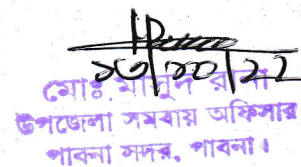 ১৩/১০/২২
মোঃ মাসুদ রানা
উপজেলা সমবায় অফিসার
পাবনা সদর, পাবনা।